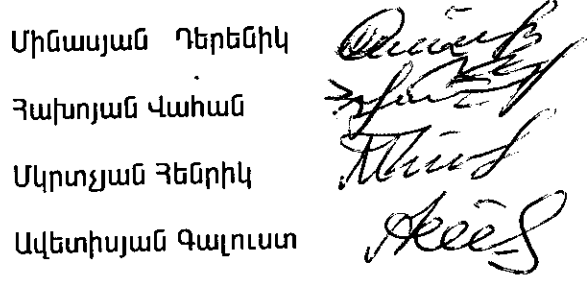 Մինասյան Դերենիկ
Հախոյան Վահան
Մկրտչյան Հենրիկ
Ավետիսյան Գալուստ